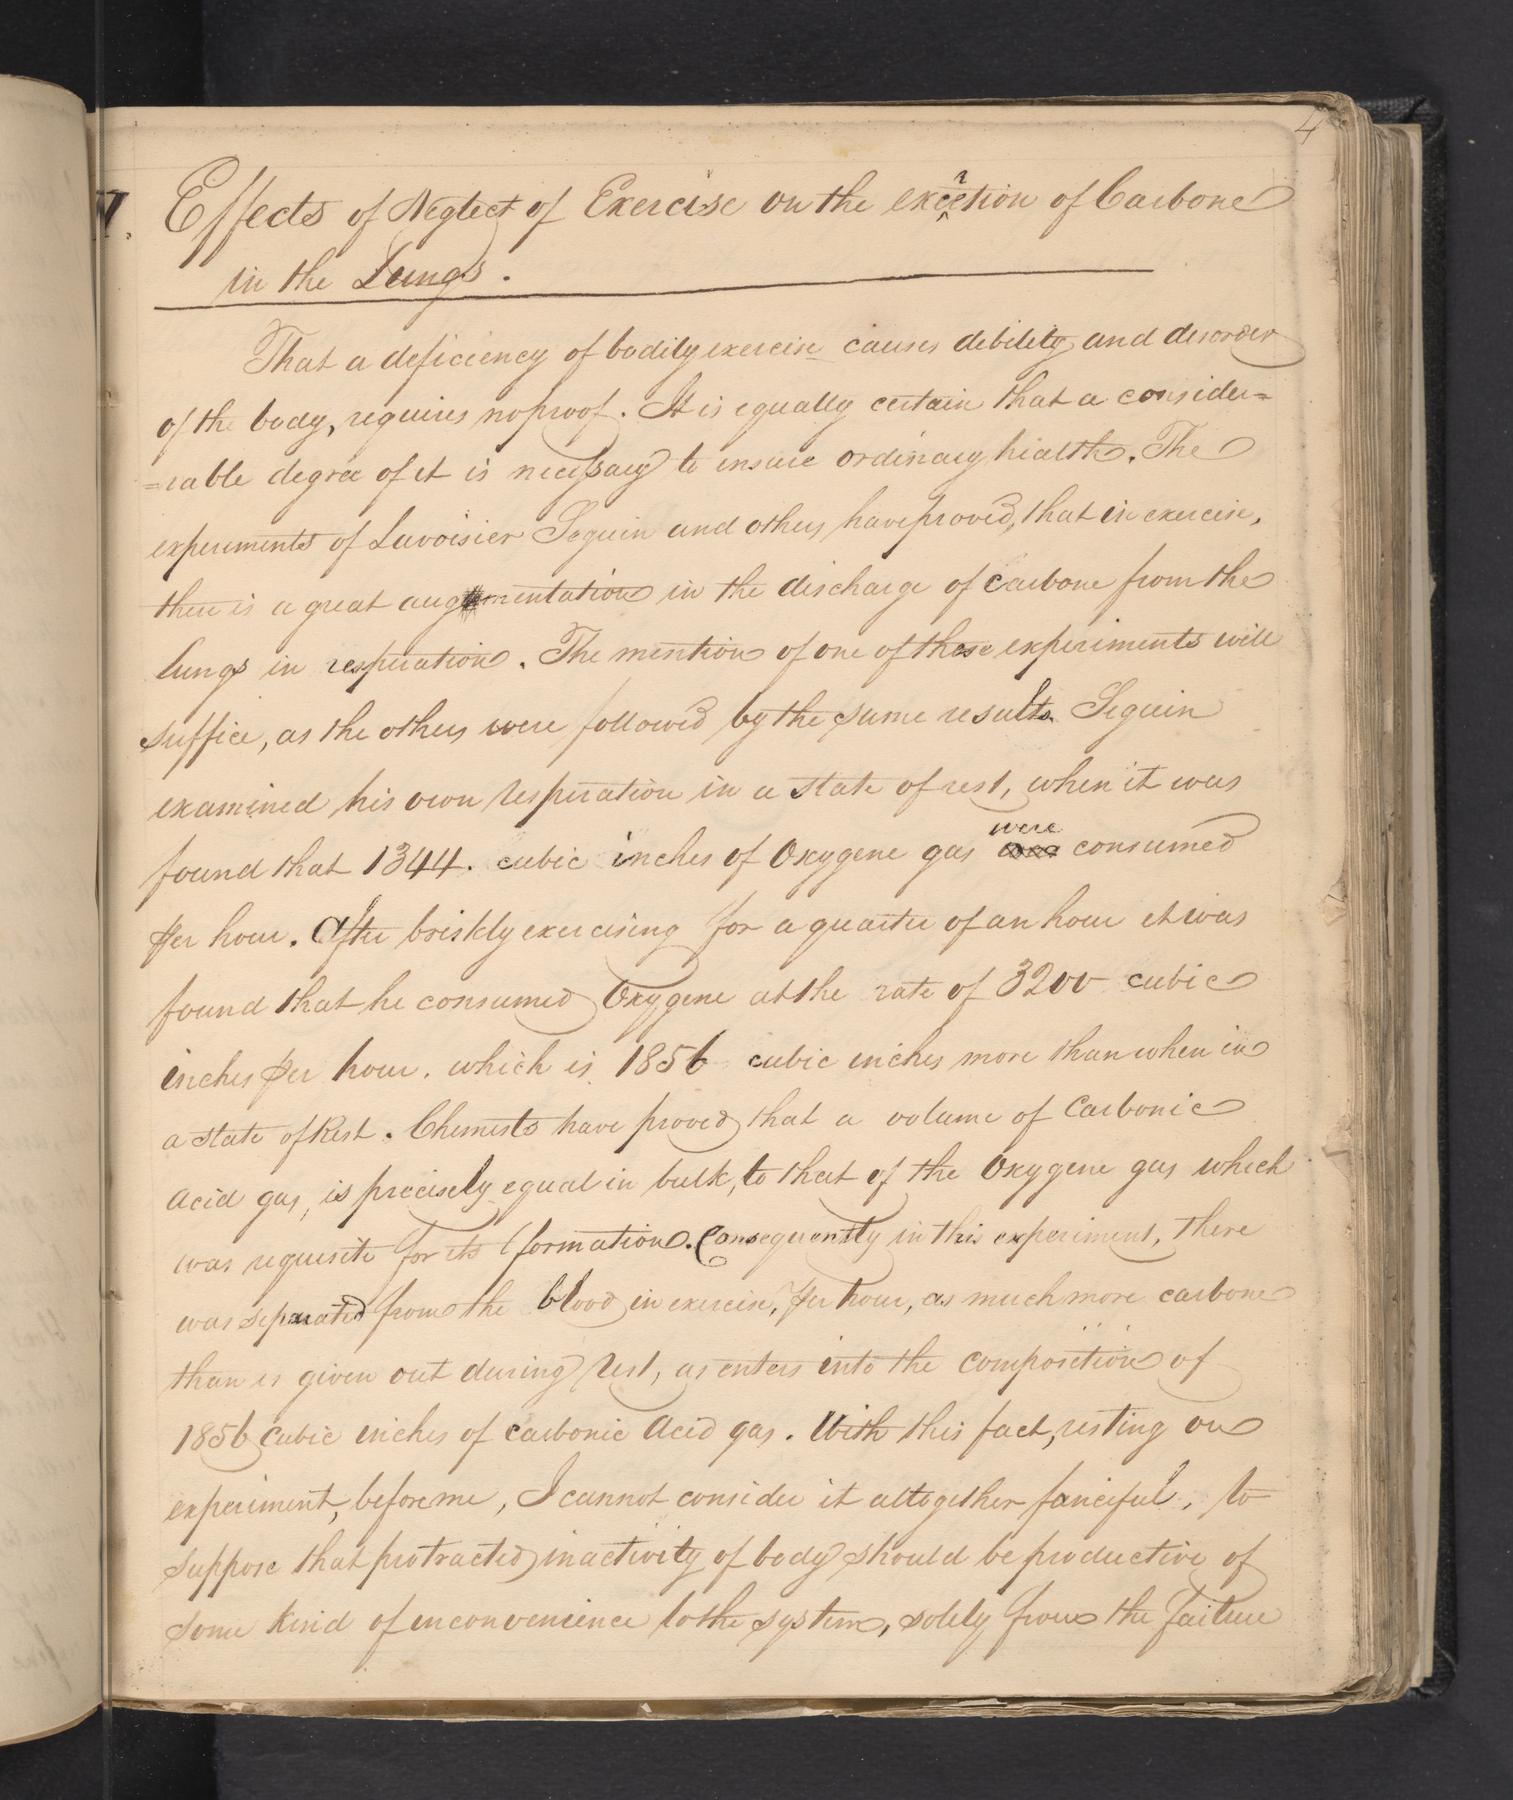 4
Effects of Neglect of Exercise on the excretion of Carbone
in the Lungs.
That a deficiency of bodily exercise causes debility and disorder
of the body, requires no proof. It is equally certain that a consider=
=rable degree of it is necessary to insure ordinary health. The
experiments of Lavoisier Seguin and others have proved, that in exercise,
there is a great augmentation in the discharge of Carbone from the
lungs in respiration. The mention of one of these experiments will
suffice, as the others were followed by the same results. Seguin
examined his own respiration in a state of rest, when it was
found that 1344. cubic inches of Oxygene gas were consumed
per hour. After briskly exercising for a quarter of an hour it was
found that he consumed Oxygene at the rate of 3200 cubic
inches per hour. which is 1856 cubic inches more than when in
a state of Rest. Chemists have proved that a volume of Carbonic
Acid gas, is precisely equal in bulk, to that of the Oxygene gas which
was requisite for its formation. Consequently in this experiment, there
was separated from the blood in exercise, per hour, as much more carbone
than is given out during rest, as enters into the composition of
1856 Cubic inches of Carbonic Acid gas. With this fact, resting on
experiment, before me, I cannot consider it altogether fanciful, to
suppose that protracted inactivity of body should be productive of
some kind of inconvenience to the system, solely from the failure